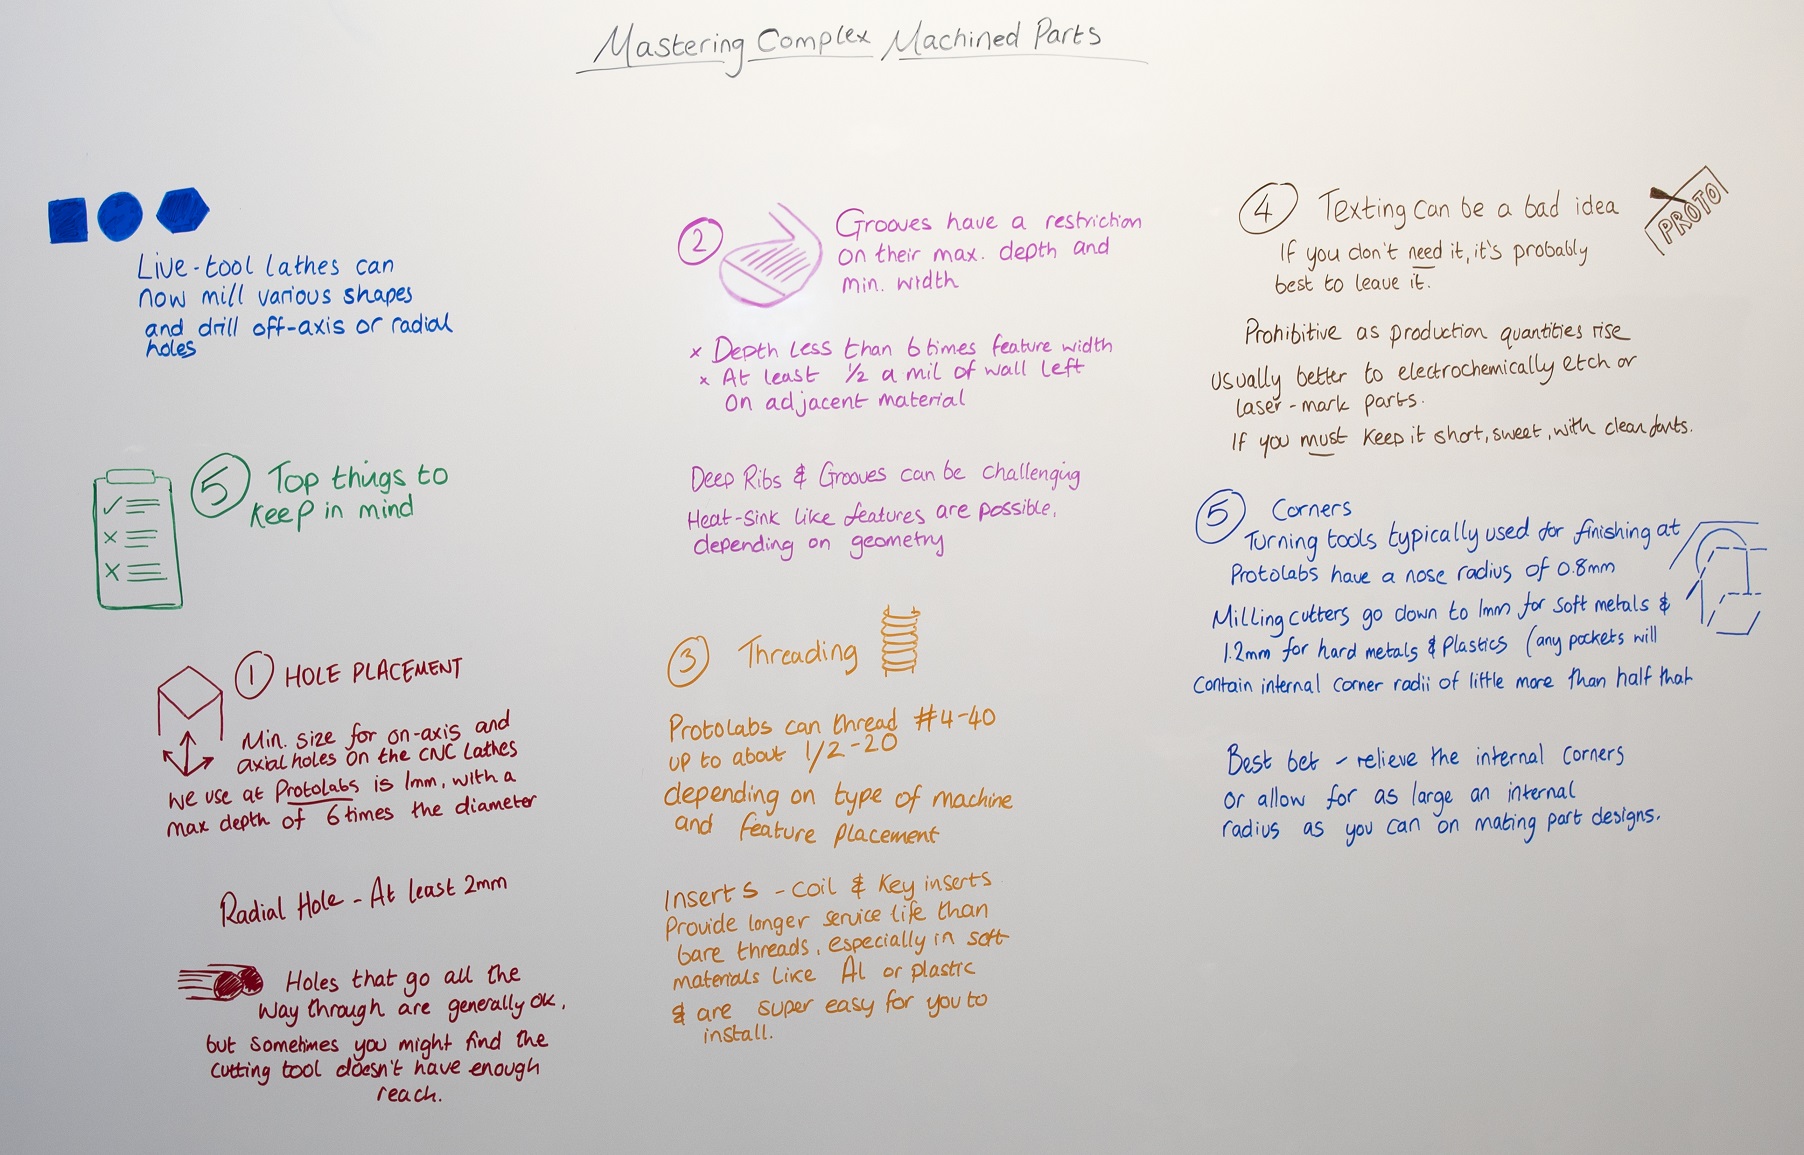 Mastering Complex Machined Parts
Live-tool lathes can
now mill various shapes
and drill off-axis or radial
holes
5 Top things to
keep in mind
1 HOLE PLACEMENT
Min. size for on-axis and
axial holes on the CNC lathes
we use at Protolabs is 1mm, with a
max depth of 6 times the diameter
Radial Hole - At least 2mm
Holes that go all the
way through are generally ok,
but sometimes you might find the
cutting tool doesn't have enough
reach.
2 Grooves have a restriction
on their max. depth and
min. width
x Depth less than 6 times feature width
x At least 1/2 a mil of wall left
on adjacent material
Deep Ribs & Grooves can be challenging
Heat-sink like features are possible,
depending on geometry
3 Threading
Protolabs can thread #4-40
up to about 1/2-20
depending on type of machine
and feature placement
Inserts - Coil & Key inserts
Provide longer service life than
bare threads, especially in soft
materials like Al or plastic
& are super easy for you to
install.
4 Texting can be a bad idea
PROTO
If you don't need it, it's probably
best to leave it.
Prohibitive as production quantities rise
Usually better to electrochemically etch or
laser-mark parts.
If you must keep it short, sweet, with clean fonts.
5 Corners
Turning tools typically used for finishing at
Protolabs have a nose radius of 0.8mm
Milling cutters go down to 1mm for soft metals &
1.2mm for hard metals & Plastics (any pockets will
contain internal corner radii of little more than half that
Best bet - relieve the internal corners
or allow for as large an internal
radius as you can on mating part designs.